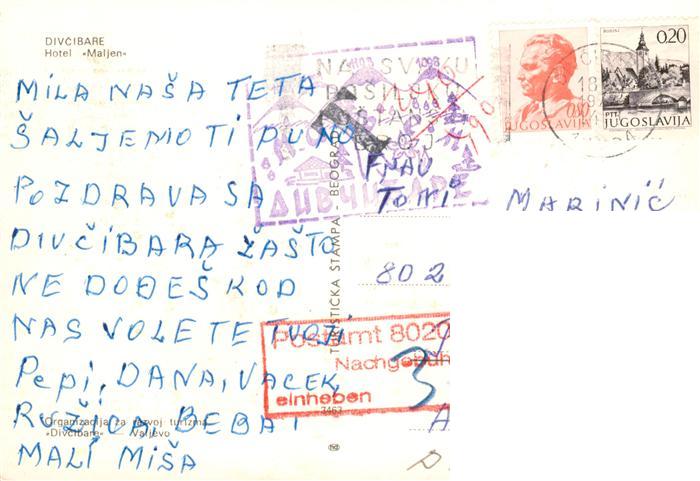 DIVČIBARE
Hotel »Maljen«
MILA NAŠA TETA
ŠALJEMO TI PUNO
POZDRAVA SA
DIVČIBARA ZAŠTO
NE DOĐEŠ KOD
NAS VOLE TE TVOJI
Pepi, DANA, VACEK,
RUŽICA, BEBA I
MALI MIŠA
Organizacija za razvoj turizma
»Divčibare« — Valjevo
TURISTICKA STAMPA - BEOGRAD
3463
NA SVAKU
POŠILJKU
ДИВЧИБАРЕ
T
0.80
JUGOSLAVIJA
BOHINJ
0.20
PTT
JUGOSLAVIJA
FRAU
TONI MARINIĆ
802
Postamt 8020
Nachgebühr
einheben
3
A